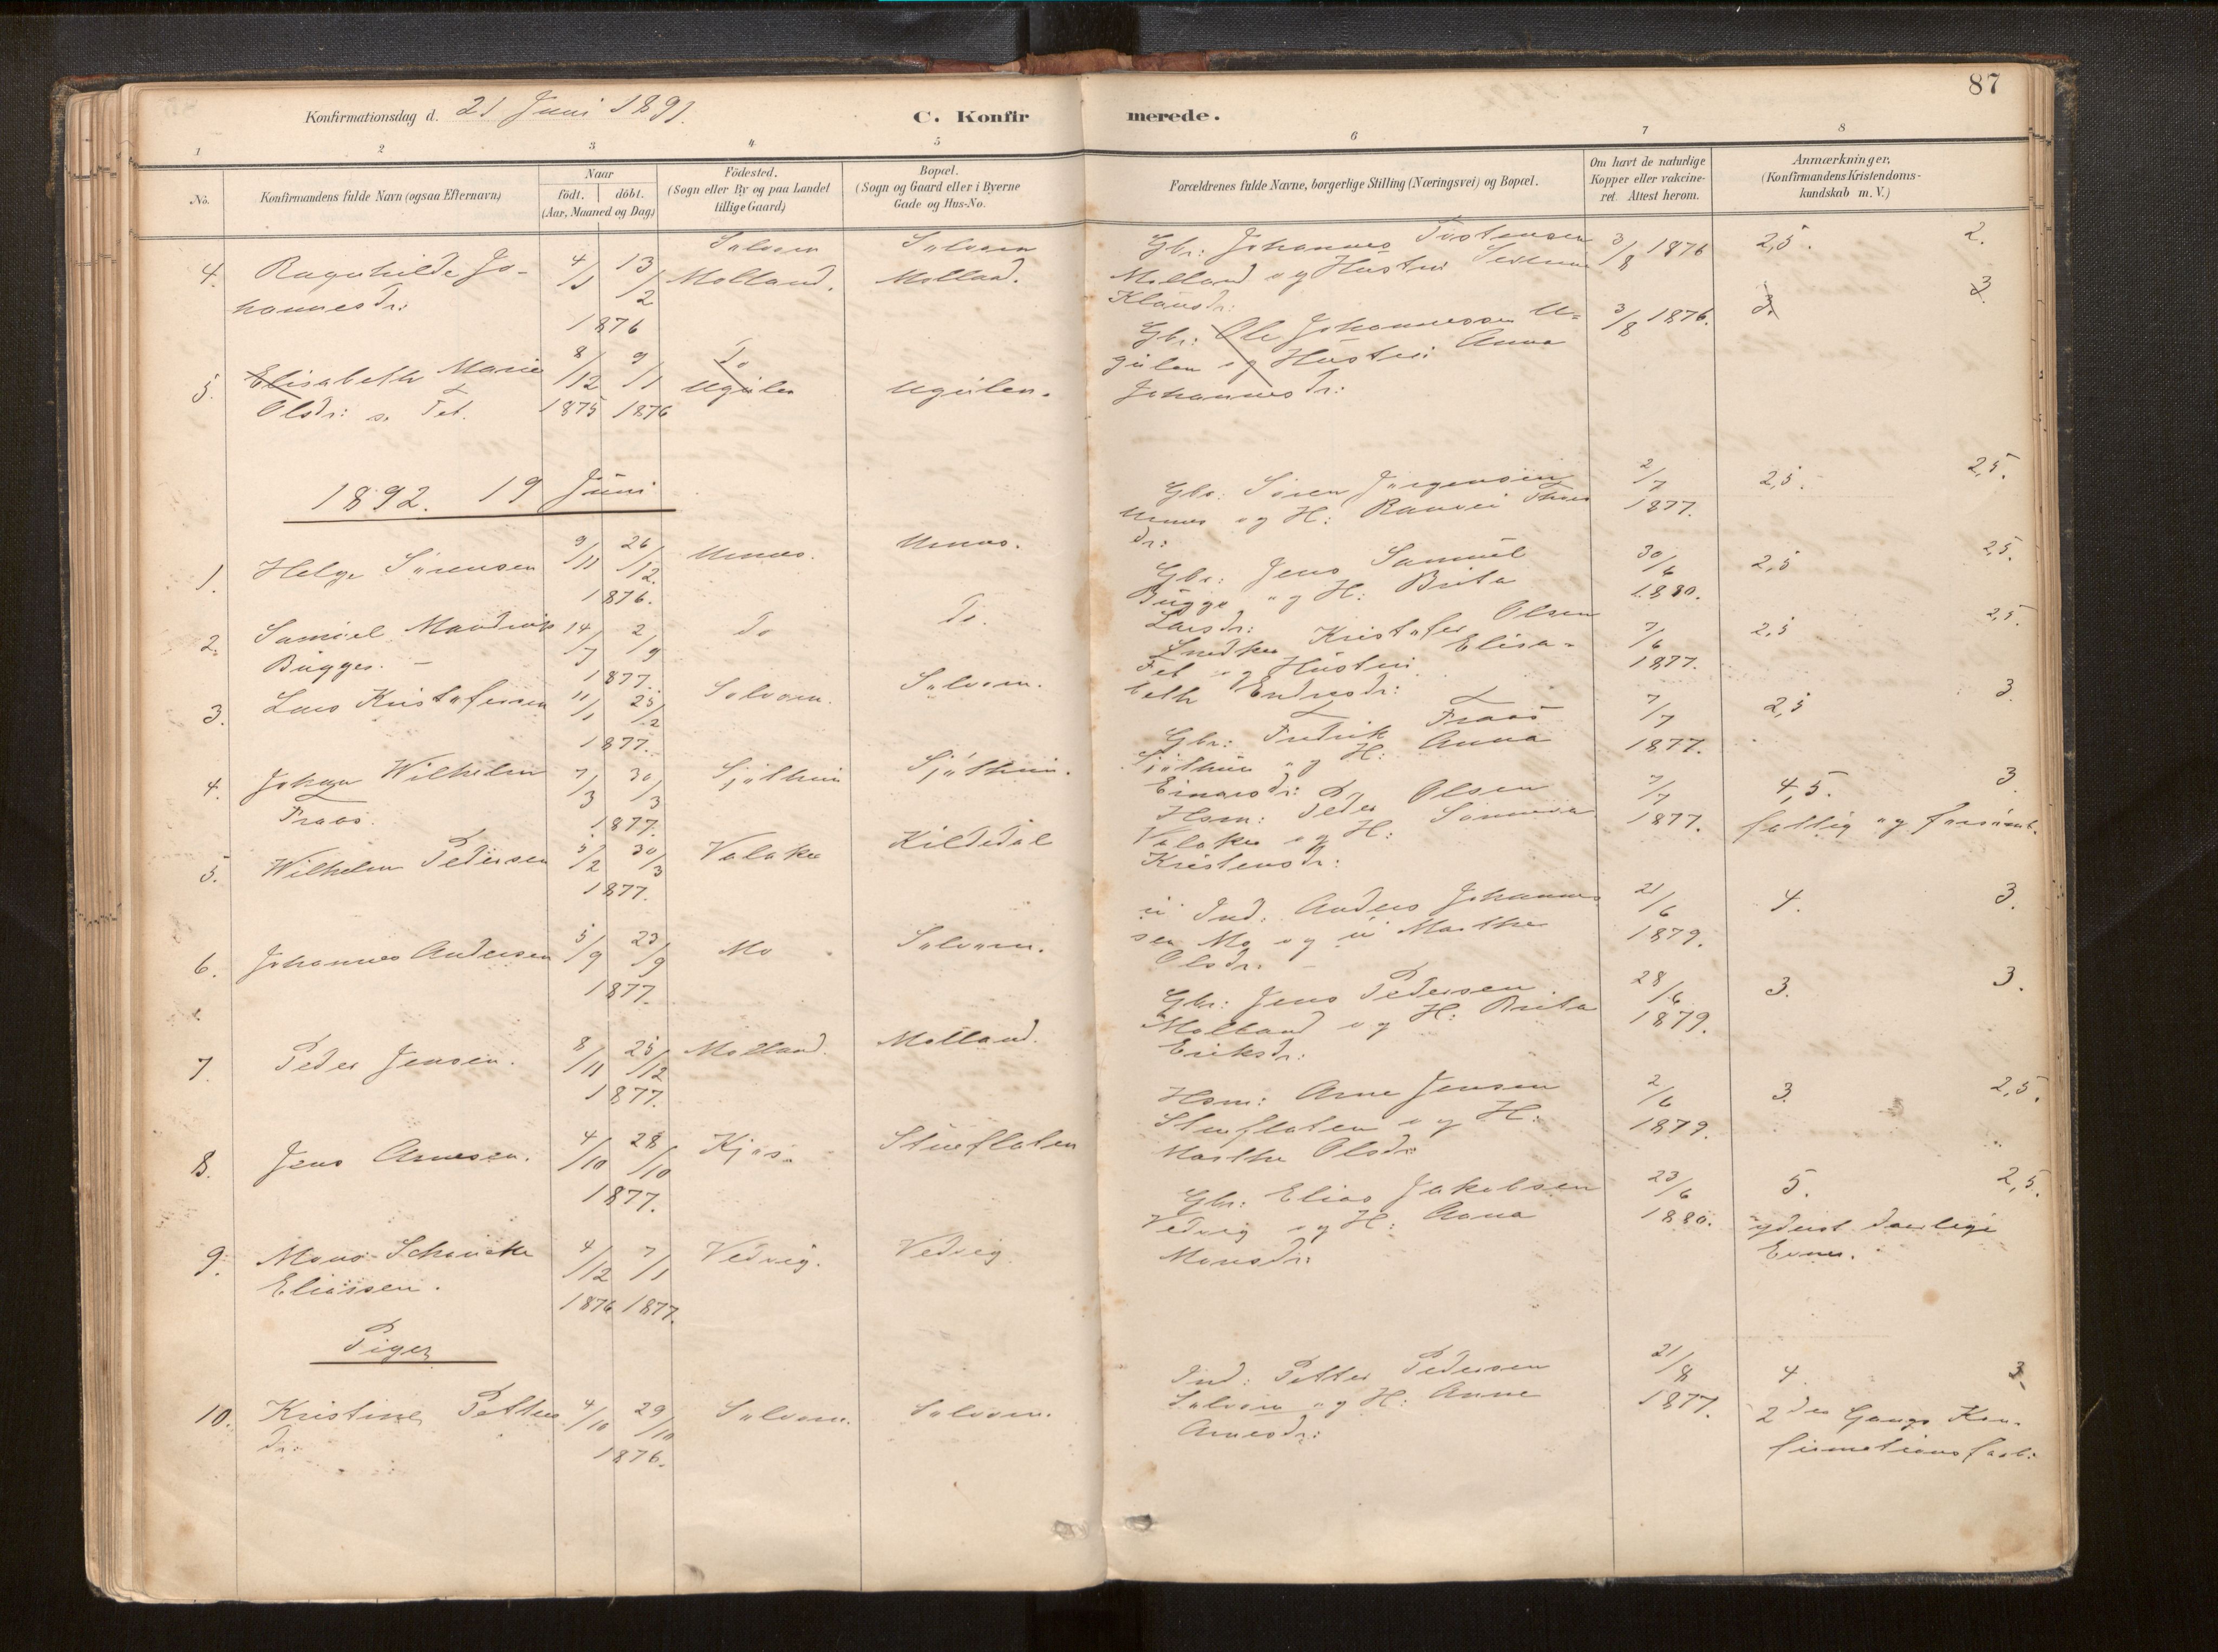 87
Konfirmationsdag d. 21 Juni 1891.
C. Konfirmerede.
1 2 3 4 5 6 7 8
No.
Konfirmandens fulde Navn (ogsaa Efternavn)
Naar
födt. döbt.
(Aar, Maaned og Dag)
Födested.
(Sogn eller By og paa Landet
tillige Gaard)
Bopæl.
(Sogn og Gaard eller i Byerne
Gade og Hus-No.
Forældrenes fulde Navne, borgerlige Stilling (Næringsvei) og Bopæl.
Om havt de naturlige
Kopper eller vakcine-
ret. Attest herom.
Anmærkninger,
(Konfirmandens Kristendoms-
kundskab m. V.)
4. Ragnhilde Jo-
hannesdr:
4/1 13/2
1876
Solvorn
Molland.
Solvorn
Molland.
Gbr: Johannes Tostensen
Molland og Hustru
Klausdr:
3/8 1876
2,5. 2.
5. Elisabeth Marie
Olsdr: s. Fet.
8/12 9/1
1875 1876
Do
Ugulen
Ugulen.
Gbr: Ole Johannessen U-
gulen og Hustru Anna
Johannesdr:
3/8 1876.
3. 3.
1892. 19 Juni
1. Helge Sörensen
9/11 26/12.
1876.
Urnæs.
Urnæs.
Gbr: Sören Jörgensen
Urnes og H: Ranvei
dr:
2/7
1877.
2,5. 2,5.
2. Samuel
Bugge. -
14/7 2/9
1877.
do
Do.
Gbr: Jens Samuel
Bugge og H: Brita
Larsdr:
30/6
1880.
2,5 2,5.
3. Lars Kristofersen
11/1 25/2
1877.
Solvorn.
Solvorn.
Snedker Kristofer Olsen
Fet og Hustru Elisa-
beth Endresdr:
7/6
1877.
2,5 2,5.
4. Johan Wilhelm
Fraas.
7/3 30/3
1877.
Sjöthun
Sjöthun.
Gbr: Fredrik Fraas
Sjöthun og H: Anna
Einarsdr:
7/7
1877.
2,5 3.
5. Wilhelm Pedersen
5/2 30/3
1877.
Valaker
Kildedal
Hsm: Peder Olsen
Valaker og H: Sönneva
Kristensdr:
7/7
1877.
4,5. 3
fattig og forsömt.
6. Johannes Andersen
5/9 23/9
1877.
Mo
Solvorn.
u Ind: Anders Johannes
sen Mo og u Marthe
Olsdr.
21/6
1879.
4. 3.
7. Peder Jensen.
8/11 25/12
1877.
Molland.
Molland.
Gbr: Jens Pedersen
Molland og H: Brita
Eriksdr:
28/6
1879.
3. 3.
8. Jens Arnesen.
4/10 28/10
1877.
Kjös.
Stueflaten
Hsm: Arne Jensen
Stueflaten og H:
Marthe Olsdr:
2/6
1879.
3. 2,5.
9. Mons Schancke
Eliassen.
4/12 7/1
1876 1877.
Vedvig.
Vedvig
Gbr: Elias Jakobsen
Vedvig og H: Anna
Monsdr:
23/6
1880.
5. 2,5.
yderst daarlige
Evner.
Piger
10. Kristine Petters
dr:
4/10 29/10
1876.
Solvorn.
Solvorn.
Ind: Petter Pedersen
Solvorn og H: Anne
Arnesdr:
21/8
1877.
4. 3.
2den Gangs Kon-
firmationsforb: